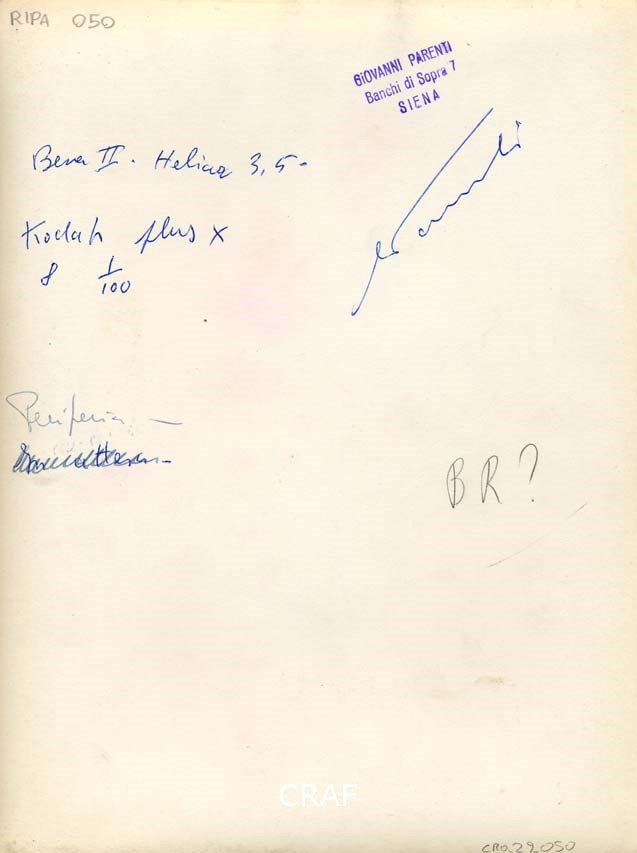 RIPA 050
GIOVANNI PARENTI
Banchi di Sopra 7
SIENA
II. Heliar 3,5-
Kodak plus x
8 1/100
Periferia -
BR?
CRAF
CRO.29050